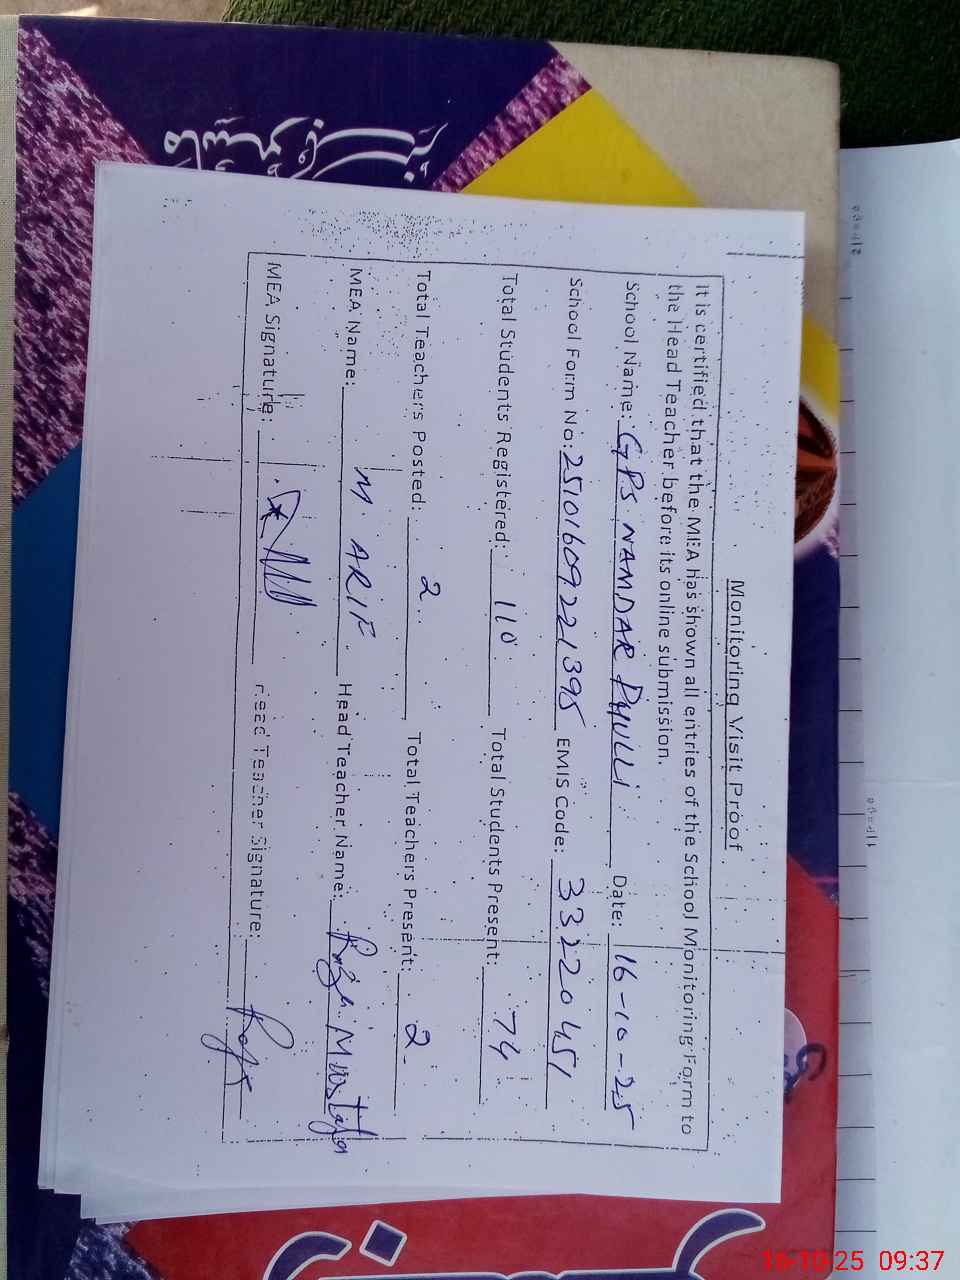 Monitoring Visit Proof
It is certified that the MEA has shown all entries of the School Monitoring Form to
the Head Teacher before its online submission.
School Name: GPS NAMDAR PHULLI Date: 16-10-25
School Form No: 25101609221395 EMIS Code: 33220451
Total Students Registered: 110 Total Students Present: 74
Total Teachers Posted: 2 Total Teachers Present: 2
MEA Name: M. ARIF Head Teacher Name: Raja Mustafa
MEA Signature: Head Teacher Signature:
16-10-25 09:37